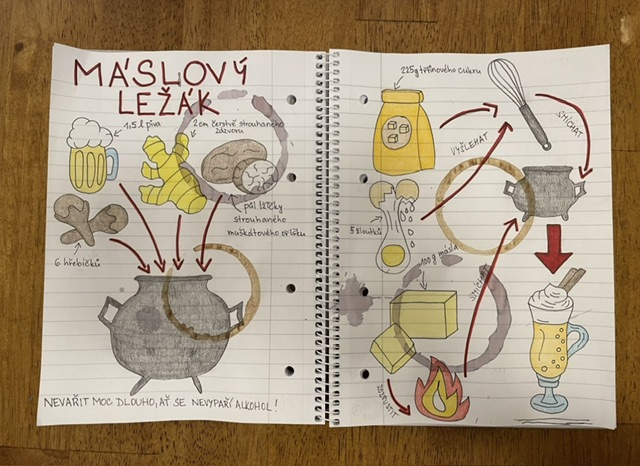 MÁSLOVÝ
LEŽÁK
1,5 l piva
2 cm čerstvě strouhaného
zázvoru
půl lžičky
strouhaného
muškátového oříšku
6 hřebíčků
NEVAŘIT MOC DLOUHO, AŤ SE NEVYPAŘÍ ALKOHOL!
225g třtinového cukru
VYŠLEHAT
SMÍCHAT
5 žloutků
100g másla
SMÍCHAT
ROZPUSTIT